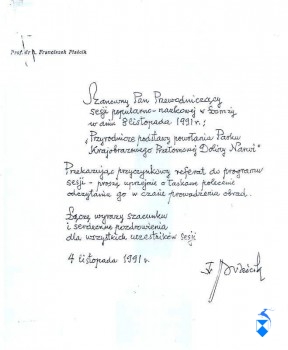 Prof. dr h. Franciszek Plaścik
Szanowny Pan Przewodniczący
sesji popularno-naukowej w Łomży
w dniu 8 listopada 1991 r.;
"Przyrodnicze podstawy powołania Parku
Krajobrazowego Przełomowej Doliny Narwi"
Przekazując przyczynkowy referat do programu
sesji - proszę uprzejmie o łaskawe polecenie
odczytania go w czasie prowadzenia obrad.
Łączę wyrazy szacunku
i serdeczne pozdrowienia
dla wszystkich uczestników sesji
4 listopada 1991 r.